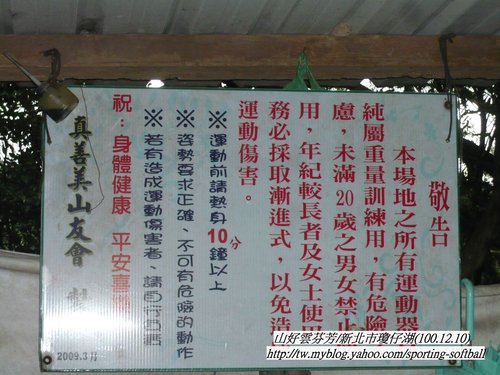 敬告
本場地之所有運動器
純屬重量訓練用，有危險
慮，未滿20歲之男女禁止
用，年紀較長者及女士使用
務必採取漸進式，以免造
運動傷害。
※運動前請熱身10分鐘以上
※姿勢要求正確、不可有危險的動作
※若有造成運動傷害者、請自行負責
祝：身體健康 平安喜樂
真善美山友會 製
2009.3月
山好雲芬芳/新北市瓊仔湖(100.12.10)
http://tw.myblog.yahoo.com/sporting-softball